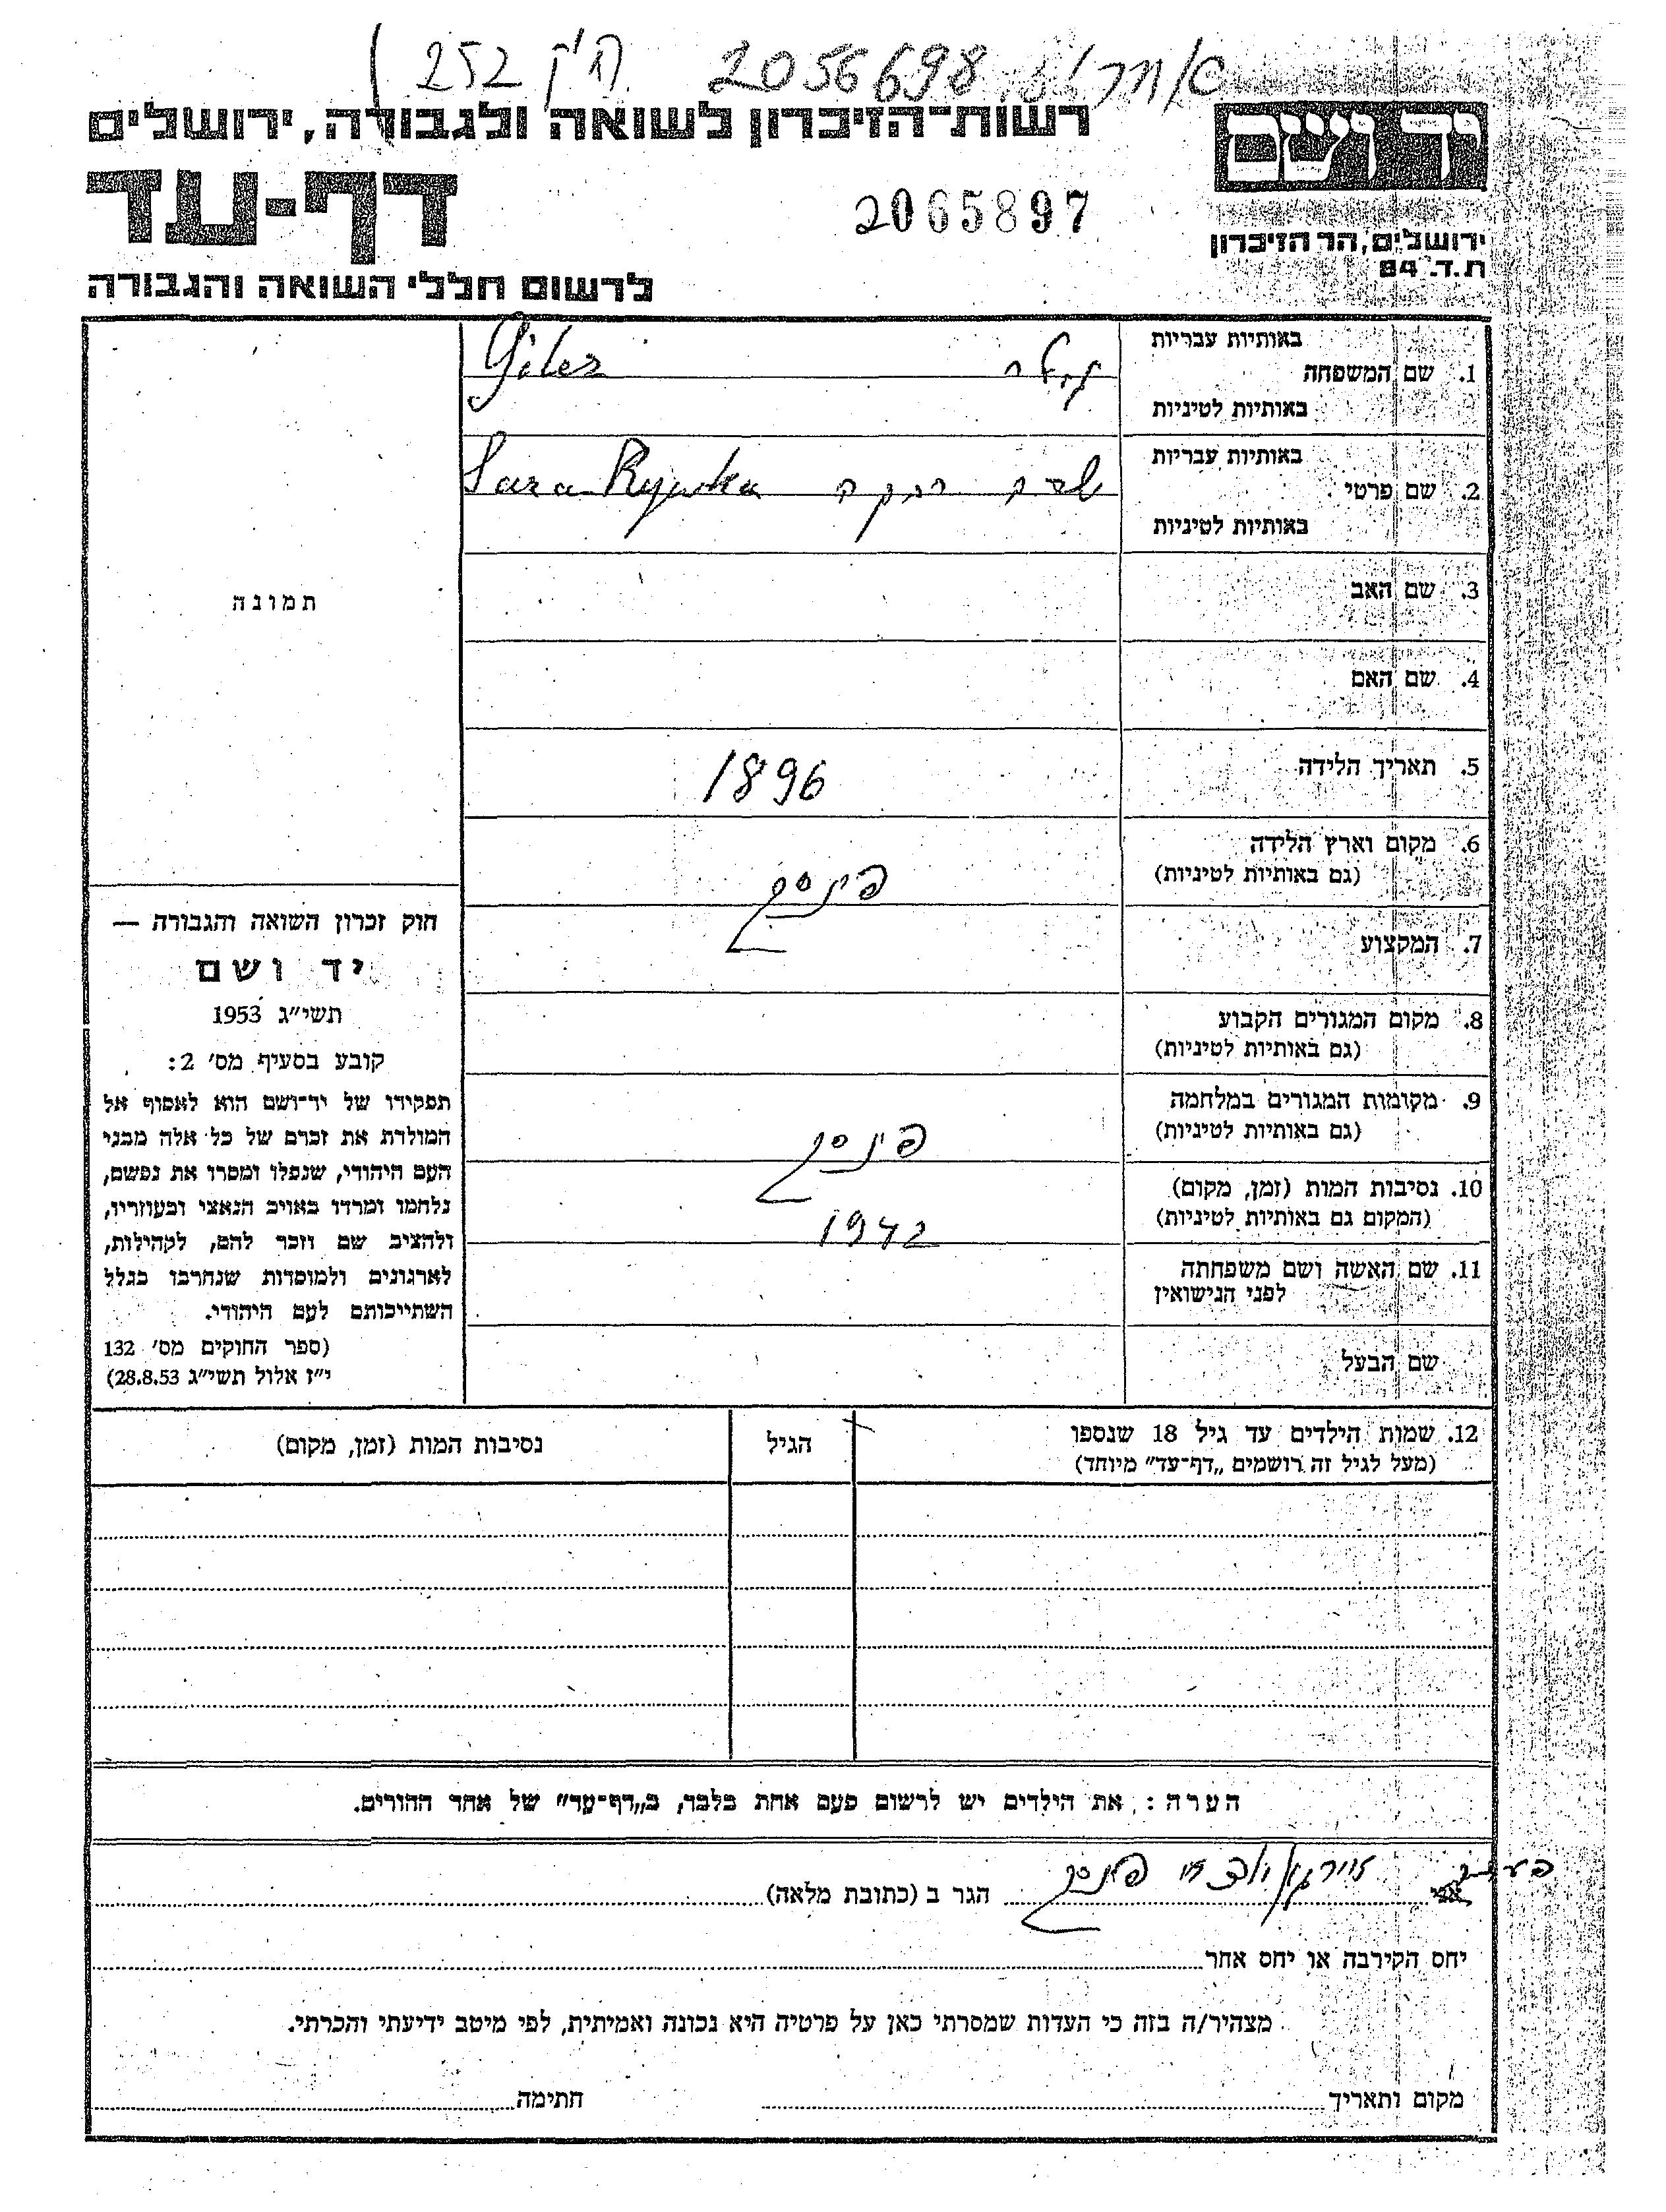 2056698 ת'ק 252
רשות־הזיכרון לשואה ולגבורה, ירושלים
יד ושם
דף-עד
2065897
ירושלים, הר הזיכרון
ת.ד. 84
לרשום חללי השואה והגבורה
באותיות עבריות
1. שם המשפחה
גילר Giler
באותיות לטיניות
באותיות עבריות
2. שם פרטי
שרה רבקה Sara Rywka
באותיות לטיניות
3. שם האב
4. שם האם
תמונה
5. תאריך הלידה
1896
6. מקום וארץ הלידה
(גם באותיות לטיניות)
פינסק
7. המקצוע
8. מקום המגורים הקבוע
(גם באותיות לטיניות)
9. מקומות המגורים במלחמה
(גם באותיות לטיניות)
פינסק
10. נסיבות המות (זמן, מקום)
(המקום גם באותיות לטיניות)
1942
11. שם האשה ושם משפחתה
לפני הנישואין
שם הבעל
חוק זכרון השואה והגבורה —
יד ושם
תשי״ג 1953
קובע בסעיף מס׳ 2:
תפקידו של יד־ושם הוא לאסוף אל
המולדת את זכרם של כל אלה מבני
העם היהודי, שנפלו ומסרו את נפשם,
נלחמו ומרדו באויב הנאצי ובעוזריו,
ולהציב שם וזכר להם, לקהילות,
לארגונים ולמוסדות שנחרבו בגלל
השתייכותם לעם היהודי.
(ספר החוקים מס׳ 132
י״ז אלול תשי״ג 28.8.53)
12. שמות הילדים עד גיל 18 שנספו
(מעל לגיל זה רושמים „דף־עד״ מיוחד)
הגיל
נסיבות המות (זמן, מקום)
הערה: את הילדים יש לרשום פעם אחת בלבד, ב„דף־עד״ של אחד ההורים.
אני פינסק הגר ב (כתובת מלאה)
יחס הקירבה או יחס אחר
מצהיר/ה בזה כי העדות שמסרתי כאן על פרטיה היא נכונה ואמיתית, לפי מיטב ידיעתי והכרתי.
מקום ותאריך חתימה